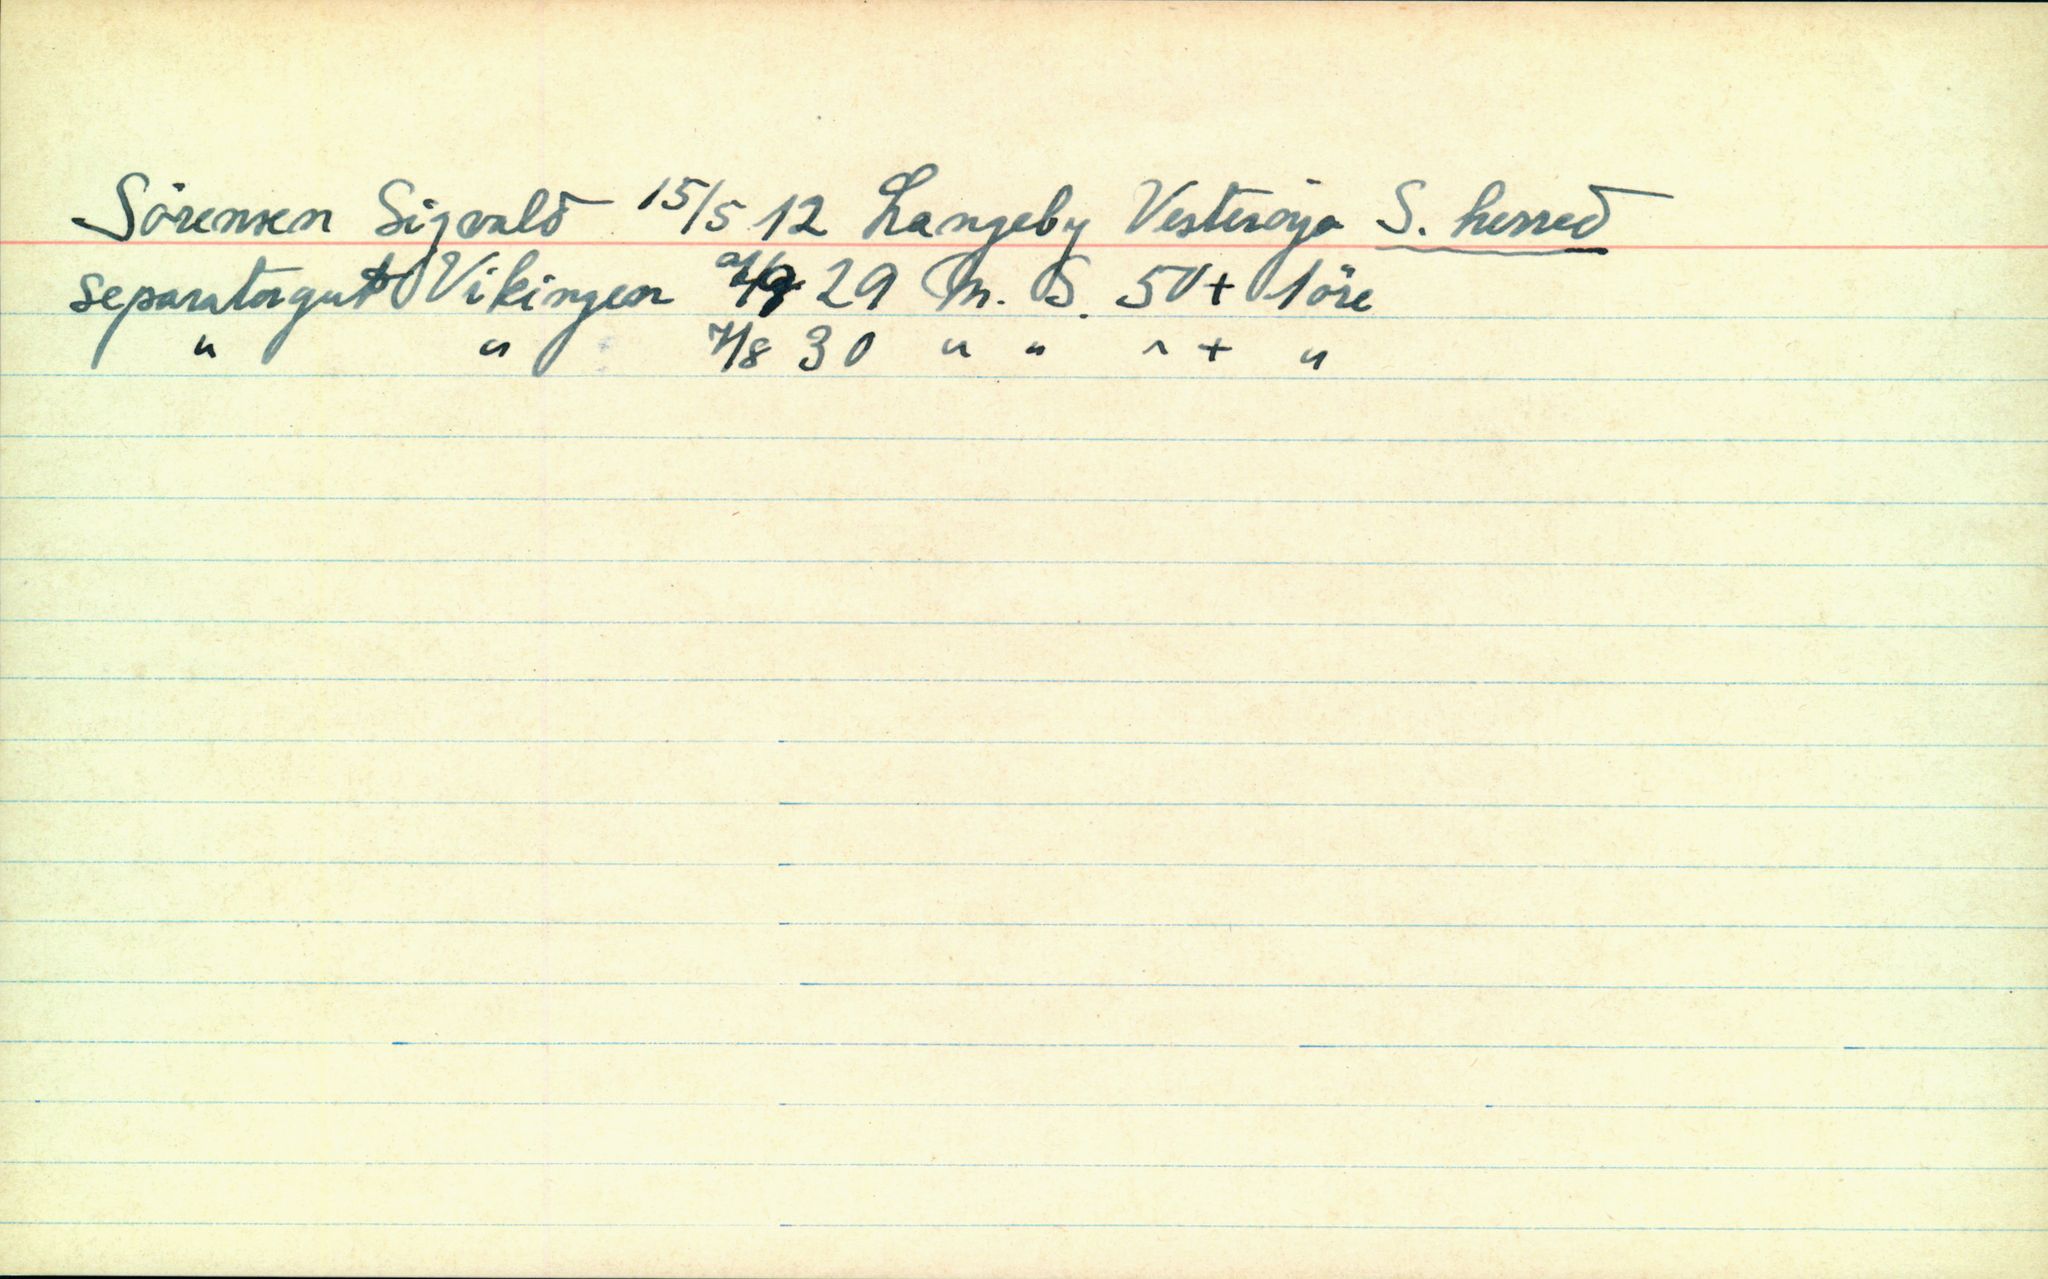 Sörensen Sigvald 15/5 12 Langeby Vesteröya S. herred
separatorgutt Vikingen 29 m. S. 50 + 1 öre
" " 7/8 30 " " " + "